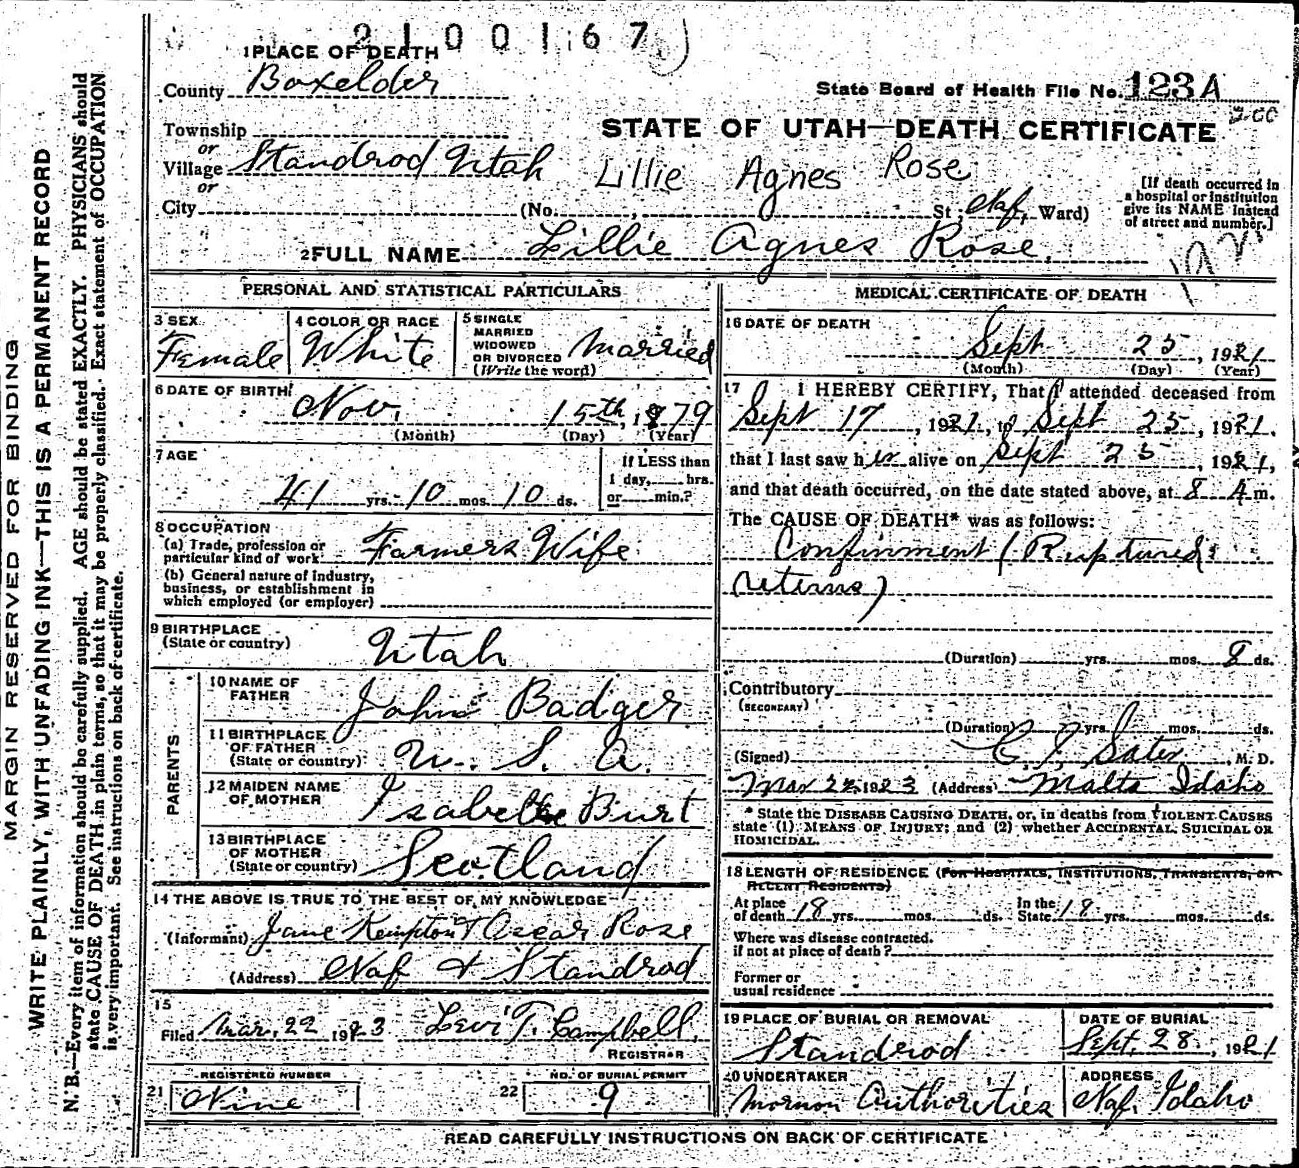 2100167
1 PLACE OF DEATH
County Boxelder
State Board of Health File No. 123 A
Township
or
Village Standrod Utah
or
City
STATE OF UTAH—DEATH CERTIFICATE
Lillie Agnes Rose
(No. , St ; Naf, Ward)
[If death occurred in
a hospital or institution
give its NAME instead
of street and number.]
2 FULL NAME Lillie Agnes Rose.
PERSONAL AND STATISTICAL PARTICULARS
3 SEX
Female
4 COLOR OR RACE
White
5 SINGLE
MARRIED
WIDOWED
OR DIVORCED
(Write the word)
Married
6 DATE OF BIRTH
Nov. 15th, 1879
(Month) (Day) (Year)
7 AGE
41 yrs. 10 mos. 10 ds.
If LESS than
1 day, hrs.
or min.?
8 OCCUPATION
(a) Trade, profession or
particular kind of work
Farmers Wife
(b) General nature of industry,
business, or establishment in
which employed (or employer)
9 BIRTHPLACE
(State or country)
Utah
PARENTS
10 NAME OF
FATHER
John Badger
11 BIRTHPLACE
OF FATHER
(State or country)
U. S. A.
12 MAIDEN NAME
OF MOTHER
Isabelle Burt
13 BIRTHPLACE
OF MOTHER
(State or country)
Scotland
14 THE ABOVE IS TRUE TO THE BEST OF MY KNOWLEDGE
(Informant) Jane Kempton & Oscar Rose
(Address) Naf & Standrod
15
Filed Mar. 22 1923 Levi T. Campbell,
REGISTRAR
REGISTERED NUMBER
21 Nine
NO. OF BURIAL PERMIT
22 9
MEDICAL CERTIFICATE OF DEATH
16 DATE OF DEATH
Sept 25, 1921
(Month) (Day) (Year)
17 I HEREBY CERTIFY, That I attended deceased from
Sept 17, 1921, to Sept 25, 1921,
that I last saw her alive on Sept 25, 1921,
and that death occurred, on the date stated above, at 8 A m.
The CAUSE OF DEATH* was as follows:
Confinment (Ruptured
uterus)
(Duration) yrs. mos. 8 ds.
Contributory
(SECONDARY)
(Duration) yrs. mos. ds.
(Signed) Sater, M. D.
Mar 22, 1923 (Address) Malta Idaho
* State the DISEASE CAUSING DEATH, or, in deaths from VIOLENT CAUSES
state (1) MEANS OF INJURY; and (2) whether ACCIDENTAL, SUICIDAL OR
HOMICIDAL.
18 LENGTH OF RESIDENCE (FOR HOSPITALS, INSTITUTIONS, TRANSIENTS, OR
RECENT RESIDENTS)
At place
of death 18 yrs. mos. ds.
In the
State 18 yrs. mos. ds.
Where was disease contracted.
if not at place of death?
Former or
usual residence
19 PLACE OF BURIAL OR REMOVAL
Standrod
DATE OF BURIAL
Sept. 28, 1921
20 UNDERTAKER
Mormon Authorities
ADDRESS
Naf, Idaho
READ CAREFULLY INSTRUCTIONS ON BACK OF CERTIFICATE
MARGIN RESERVED FOR BINDING
WRITE PLAINLY, WITH UNFADING INK—THIS IS A PERMANENT RECORD
N. B.—Every item of information should be carefully supplied. AGE should be stated EXACTLY. PHYSICIANS should
state CAUSE OF DEATH in plain terms, so that it may be properly classified. Exact statement of OCCUPATION
is very important. See instructions on back of certificate.